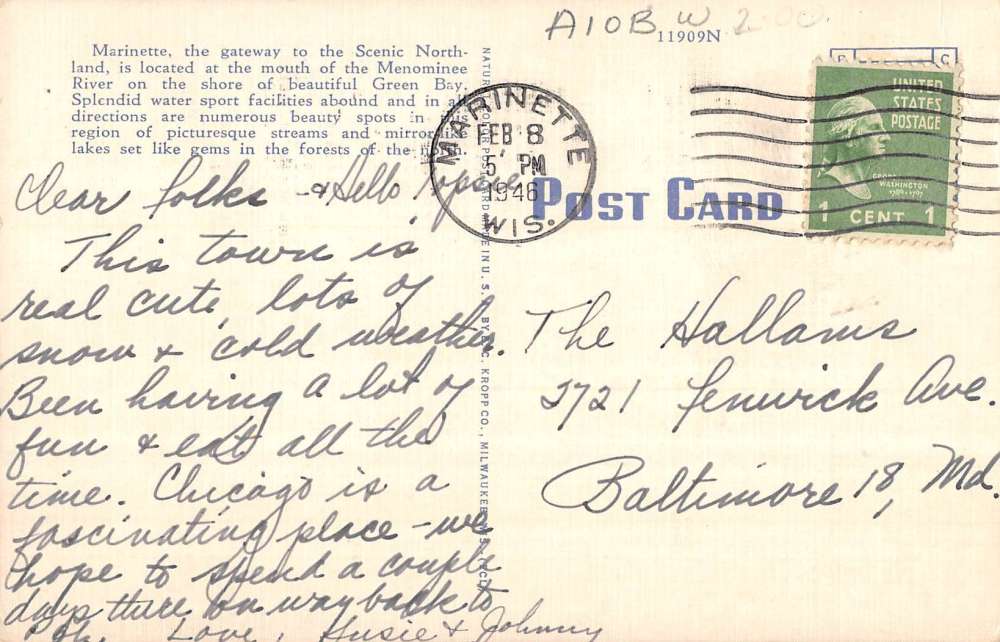 A10B W 2.00
11909N
Marinette, the gateway to the Scenic North-
land, is located at the mouth of the Menominee
River on the shore of beautiful Green Bay.
Splendid water sport facilities abound and in all
directions are numerous beauty spots in this
region of picturesque streams and mirror-like
lakes set like gems in the forests of the north.
MARINETTE
FEB 8
5 PM
1946
WIS.
UNITED
STATES
POSTAGE
GEORGE
WASHINGTON
1789-1797
1 CENT 1
POST CARD
Dear folks - & Hello
This town is
real cute, lots of
snow & cold weather.
Been having a lot of
fun & eat all the
time. Chicago is a
fascinating place - we
hope to spend a couple
days there on way back to
Love, Susie & Johnny
The Hallams
2721 Fenwick Ave.
Baltimore 18, Md.